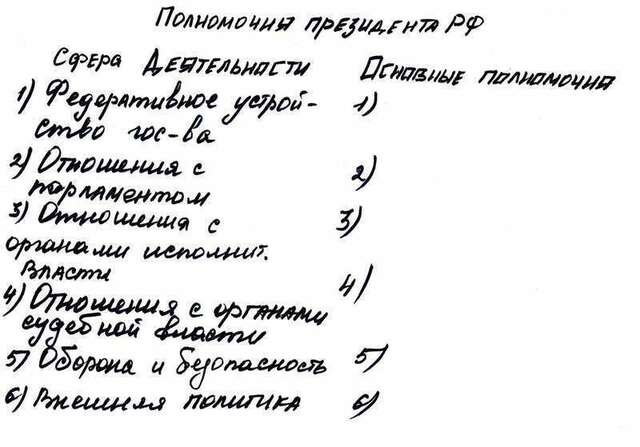 Полномочия президента РФ
Сфера Деятельности Основные полномочия
1) Федеративное устрой- 1)
ство гос-ва
2) Отношения с 2)
парламентом
3) Отношения с 3)
органами исполнит.
Власти 4)
4) Отношения с органами
судебной власти
5) Оборона и безопасность 5)
6) Внешняя политика 6)